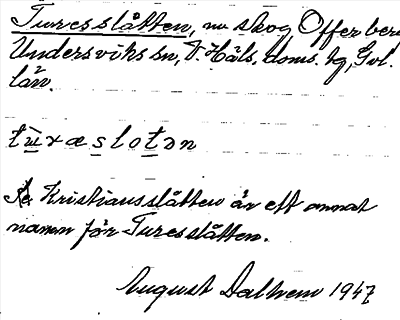 Turesslåtten, nu skog, Offerberg
Undersviks sn, V. Häls. doms. tg, Gvl.
län.
tùrœslotən
Se Kristiansslåtten är ett annat
namn för Turesslåtten.
August Dalhem 1947